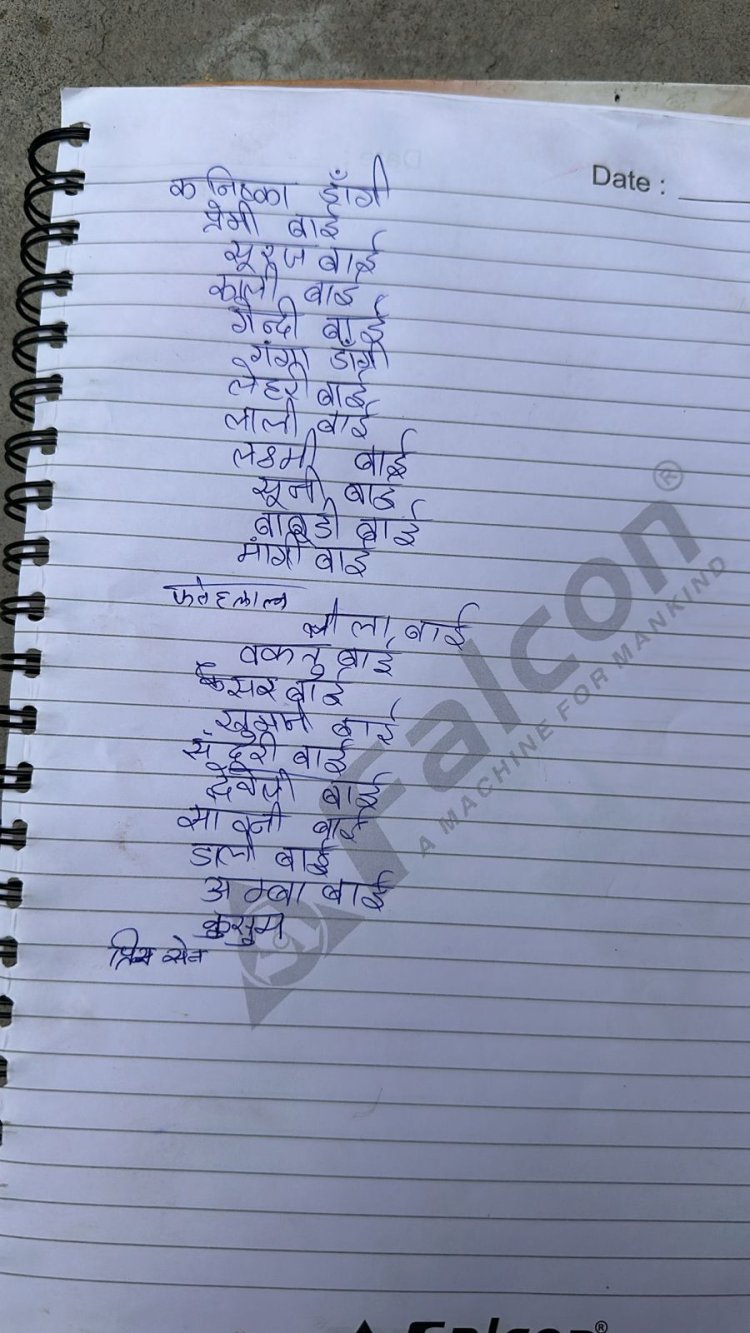 Date :
कनिष्का डाँगी
प्रेमी बाई
सूरज बाई
काली बाई
गेन्दी बाई
गंगा डाँगी
लेहरी बाई
लाली बाई
लक्ष्मी बाई
सूनी बाई
बाबूडी बाई
मांगी बाई
फतेहलाल
बाई
वकतु बाई
केसर बाई
बाई
सुंदरी बाई
बाई
सावनी बाई
डाली बाई
अम्बा बाई
कुसुम
Falcon®
A MACHINE FOR MANKIND
Falcon®